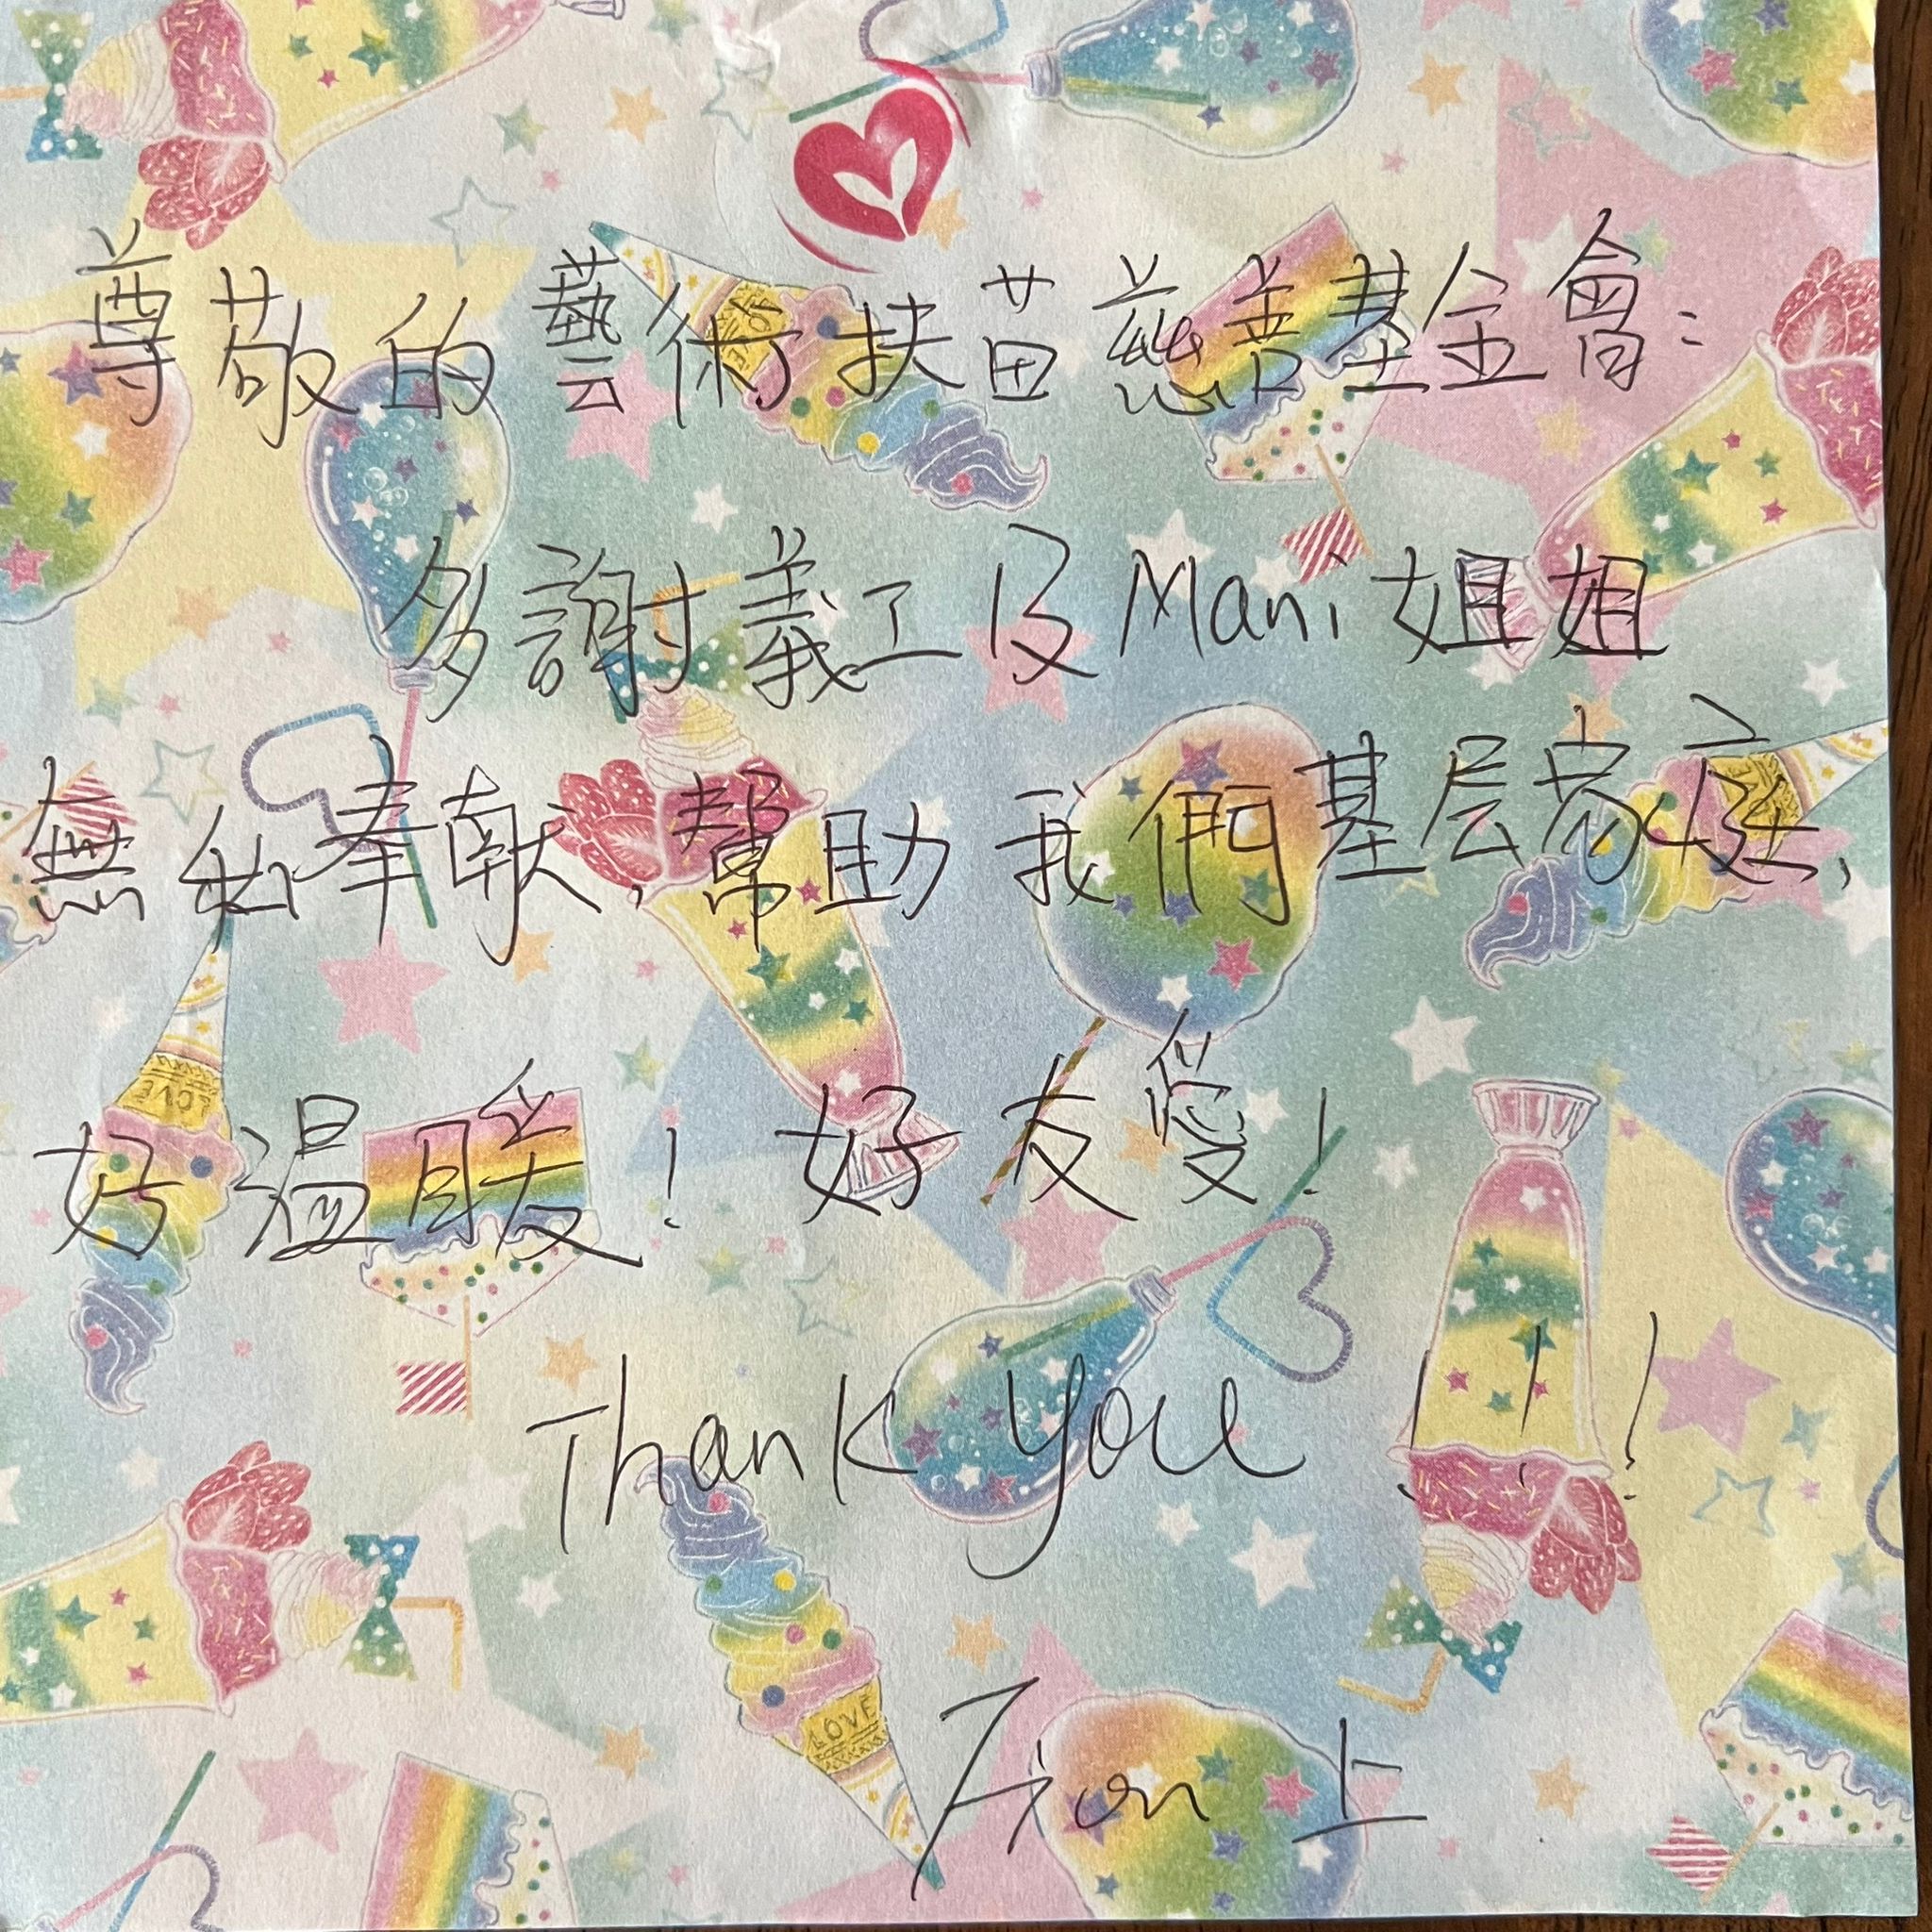 尊敬的藝術扶苗慈善基金會：
多謝義工及Mani姐姐
無私奉献，幫助我們基层家庭，
好溫暖！好友愛！
Thank you !!!
Fion上
LOVE